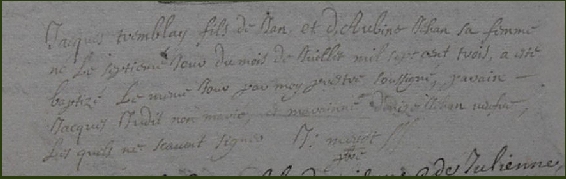 Jacques tremblay fils de Jean et d'Aubine Jehan sa femme
né Le septieme Jour du mois de Juillet mil sept cent trois, a esté
baptizé Le même Jour par moy prestre soussigné, parain
Jacques non marié, et maraine Jehan
Lesquels ne scavent signer
ptre
de Julienne